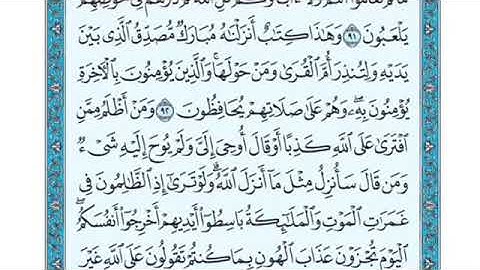 يَلْعَبُونَ ٩١ وَهَٰذَا كِتَٰبٌ أَنزَلْنَٰهُ مُبَارَكٌ مُّصَدِّقُ ٱلَّذِى بَيْنَ
يَدَيْهِ وَلِتُنذِرَ أُمَّ ٱلْقُرَىٰ وَمَنْ حَوْلَهَا ۚ وَٱلَّذِينَ يُؤْمِنُونَ بِٱلْءَاخِرَةِ
يُؤْمِنُونَ بِهِۦ ۖ وَهُمْ عَلَىٰ صَلَاتِهِمْ يُحَافِظُونَ ٩٢ وَمَنْ أَظْلَمُ مِمَّنِ
ٱفْتَرَىٰ عَلَى ٱللَّهِ كَذِبًا أَوْ قَالَ أُوحِىَ إِلَىَّ وَلَمْ يُوحَ إِلَيْهِ شَىْءٌ
وَمَن قَالَ سَأُنزِلُ مِثْلَ مَآ أَنزَلَ ٱللَّهُ ۗ وَلَوْ تَرَىٰٓ إِذِ ٱلظَّٰلِمُونَ فِى
غَمَرَٰتِ ٱلْمَوْتِ وَٱلْمَلَٰٓئِكَةُ بَاسِطُوٓا۟ أَيْدِيهِمْ أَخْرِجُوٓا۟ أَنفُسَكُمُ ۖ
ٱلْيَوْمَ تُجْزَوْنَ عَذَابَ ٱلْهُونِ بِمَا كُنتُمْ تَقُولُونَ عَلَى ٱللَّهِ غَيْرَ